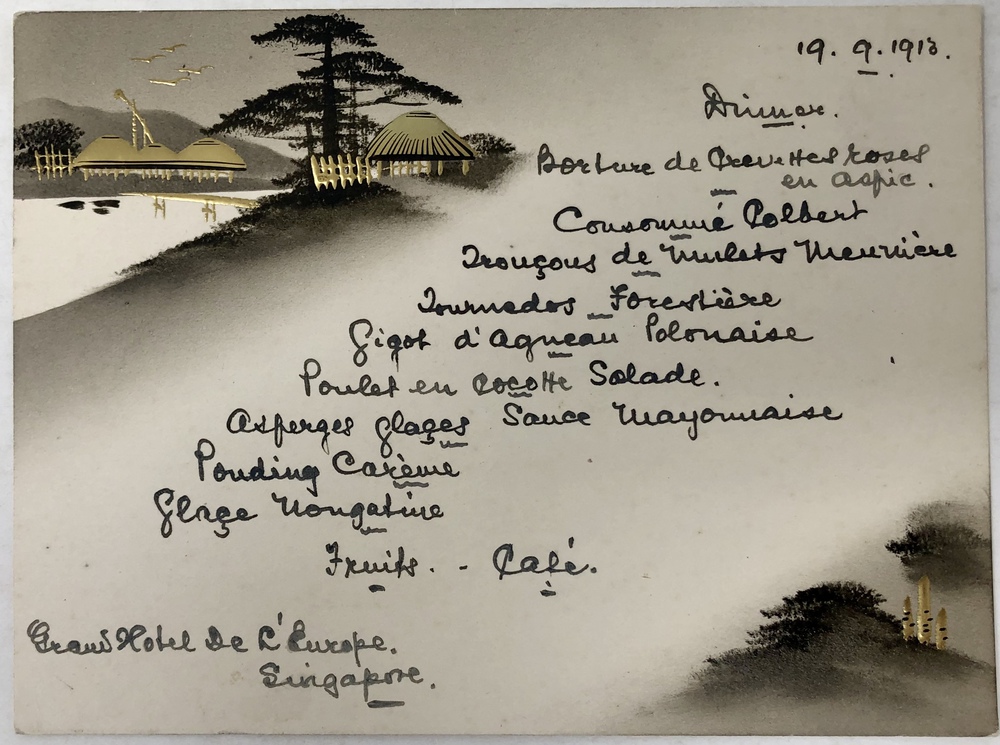 19. 9. 1913.
Dinner.
Borture de Crevettes roses
en aspic.
Consommé Colbert
Tronçons de Mulets Meunière
Tournedos Forestière
Gigot d'Agneau Polonaise
Poulet en Cocotte Salade.
Asperges glaçes Sauce Mayonnaise
Pouding Carème
Glaçe Nougatine
Fruits. - Café.
Grand Hotel De L'Europe.
Singapore.